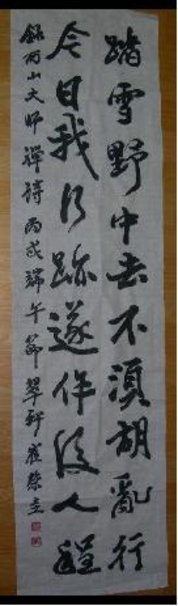 踏雪野中去不須胡亂行
今日我行跡遂作後人程
錄西山大師禪詩丙戌端午節翠軒崔榮圭